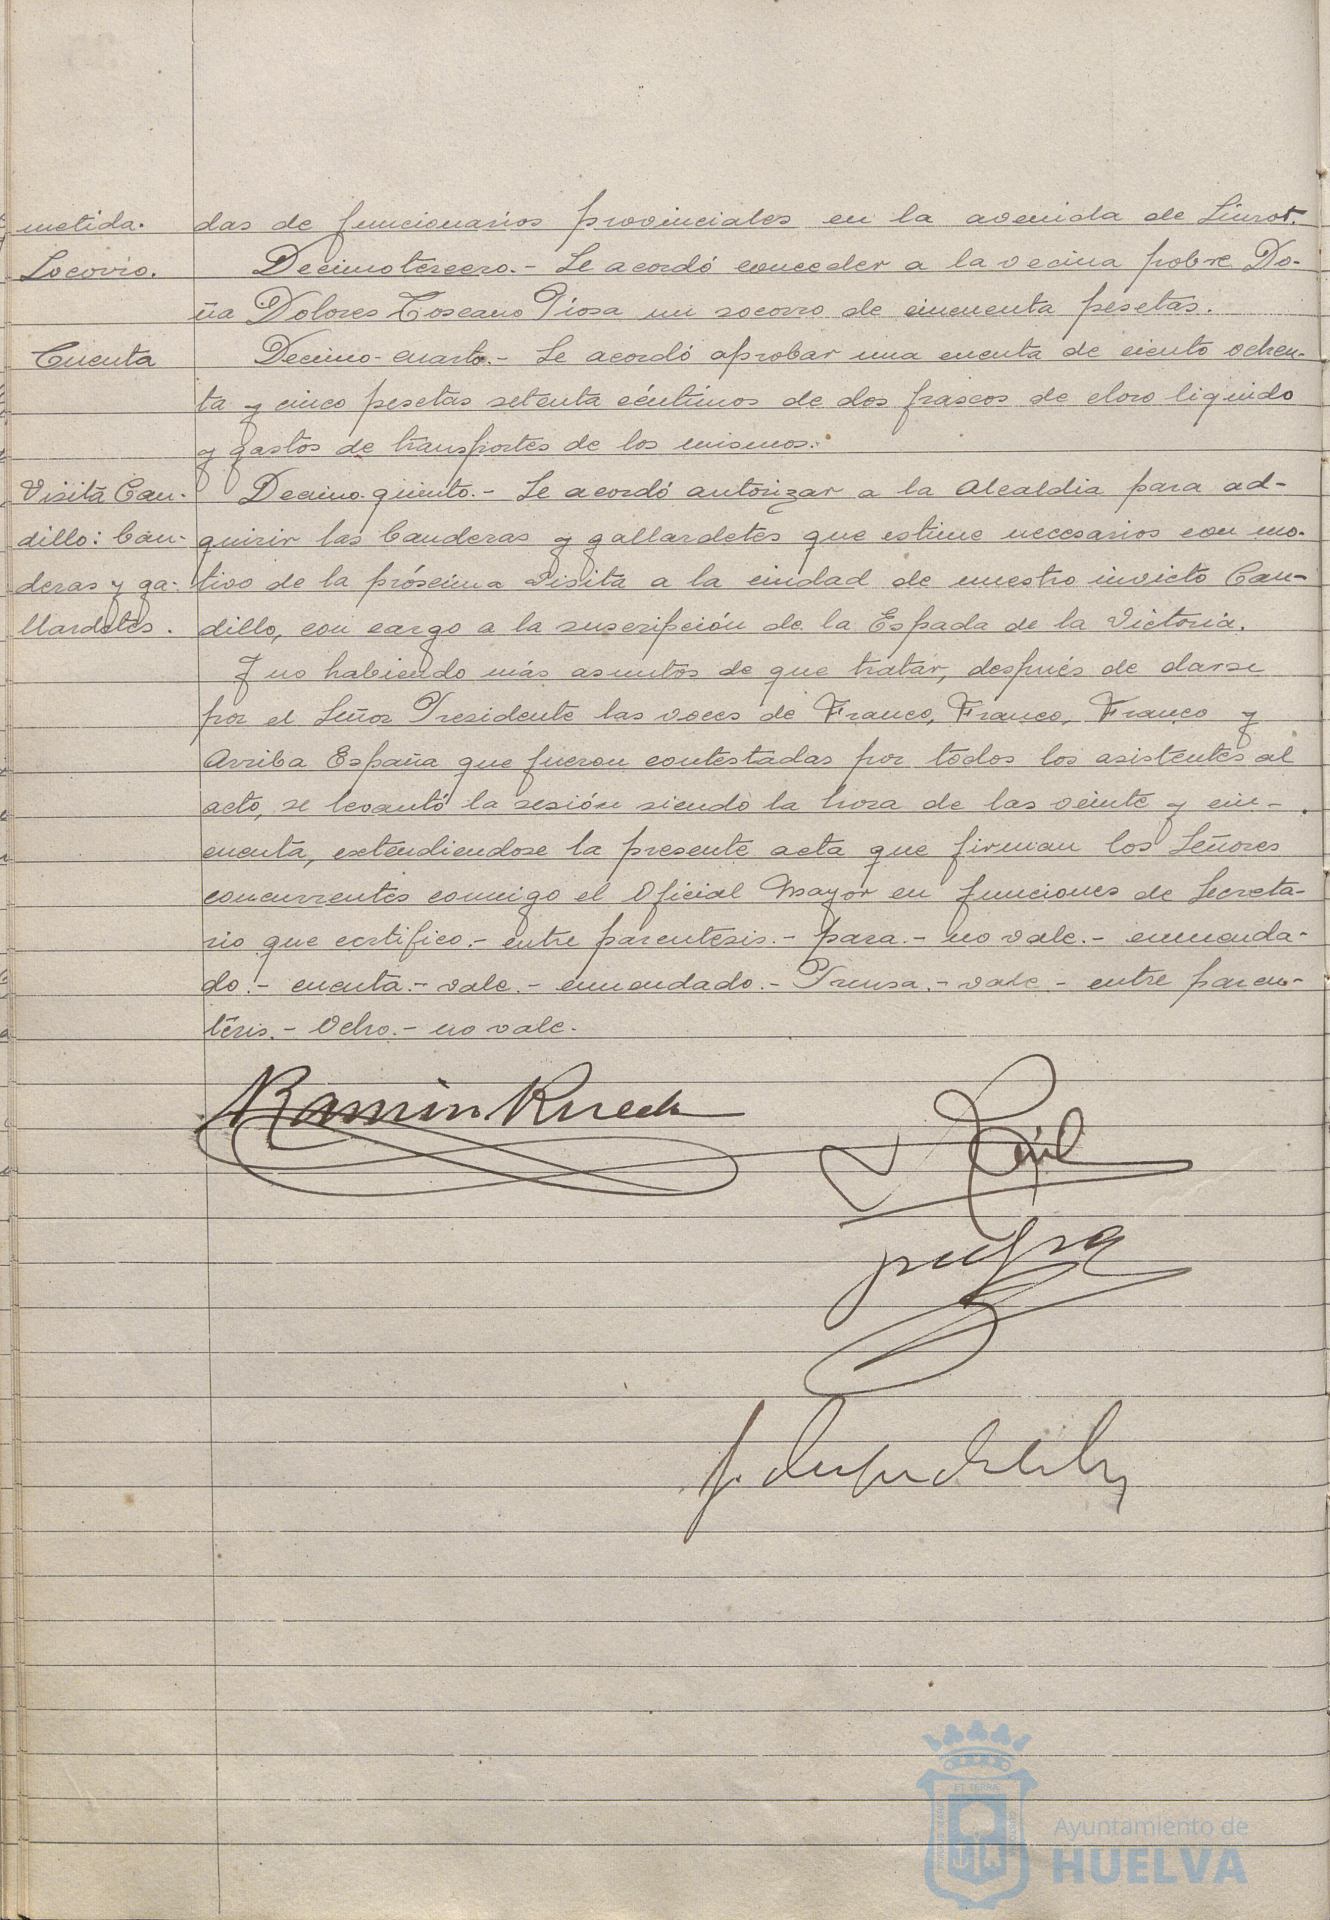 metida. das de funcionarios provinciales en la avenida de Linrot.
Socorro. Decimotercero.- Se acordó conceder a la vecina pobre Do-
ña Dolores Toscano Piosa un socorro de cincuenta pesetas.
Cuenta Decimo-cuarto.- Se acordó aprobar una cuenta de ciento ochen-
ta y cinco pesetas setenta céntimos de dos frascos de cloro liquido
y gastos de transportes de los mismos.
Visita Cau- Decimo-quinto.- Se acordó autorizar a la Alcaldia para ad-
dillo: ban- quirir las banderas y gallardetes que estime necesarios con mo-
deras y ga- tivo de la próscima visita a la ciudad de nuestro invicto Cau-
llardetes. dillo, con cargo a la suscripción de la Espada de la Victoria.
Y no habiendo más asuntos de que tratar, después de darse
por el Señor Presidente las voces de Franco, Franco, Franco y
Arriba España que fueron contestadas por todos los asistentes al
acto, se levantó la sesión siendo la hora de las veinte y cin-
cuenta, extendiendose la presente acta que firman los Señores
concurrentes conmigo el Oficial Mayor en funciones de Secreta-
rio que certifico.- entre parentesis.- para.- no vale.- enmenda-
do.- cuenta.- vale.- enmendado.- Prensa.- vale.- entre paren-
tesis.- Ocho.- no vale.
Ramón Rueda
ET TERRÆ
Ayuntamiento de
HUELVA